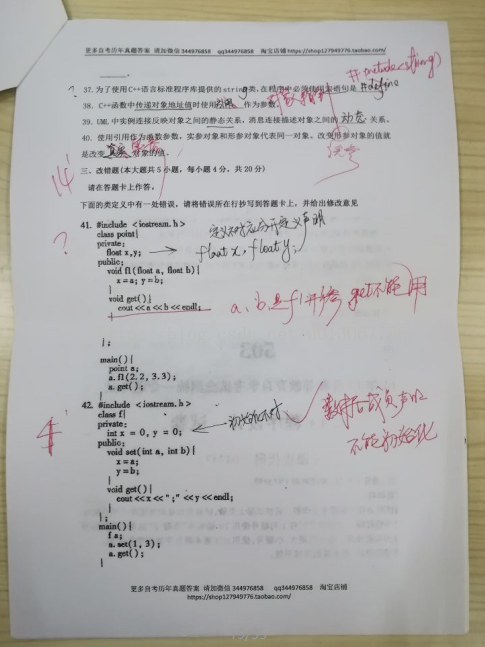 更多自考历年真题答案 请加微信 344976858 qq344976858 淘宝店铺 https://shop127949776.taobao.com/
? 37. 为了使用C++语言标准程序库提供的string类,在程序中必须使用的语句是 #define
#include<string>
38. C++函数中传递对象地址值时使用 作为参数。
39. UML中实例连接反映对象之间的静态关系,消息连接描述对象之间的 动态 关系。
40. 使用引用作为函数参数,实参对象和形参对象代表同一对象,改变形参对象的值就
是改变 对象的值。
三、改错题(本大题共5小题,每小题4分,共20分)
14'
请在答题卡上作答。
下面的类定义中有一处错误,请将错误所在行抄写到答题卡上,并给出修改意见
? 41. #include <iostream.h>
class point{
private:
float x,y; float x, float y;
public:
void f1(float a, float b){
x=a; y=b;
}
void get(){
cout<<a<<b<<endl; a、b是f1形参 get不能用
}
};
main(){
point a;
a. f1(2.2, 3.3);
a. get();
}
42. #include <iostream.h>
class f{
private:
int x = 0, y = 0; 初始化不对 数据成员声明
不能初始化
4'
public:
void set(int a, int b){
x=a;
y=b;
}
void get(){
cout<<x<<";"<<y<<endl;
}
};
main(){
f a;
a. set(1, 3);
a. get();
}
更多自考历年真题答案 请加微信 344976858 qq344976858 淘宝店铺
https://shop127949776.taobao.com/